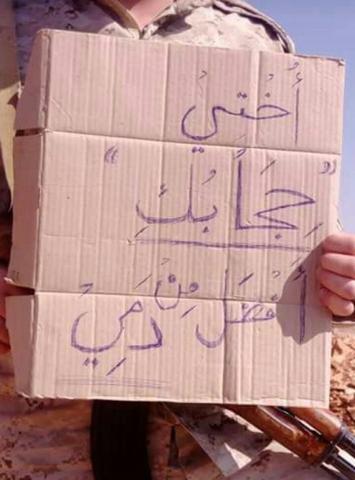 أُختي
"حِجَابُكِ"
أَفضَل مِن دَمِي